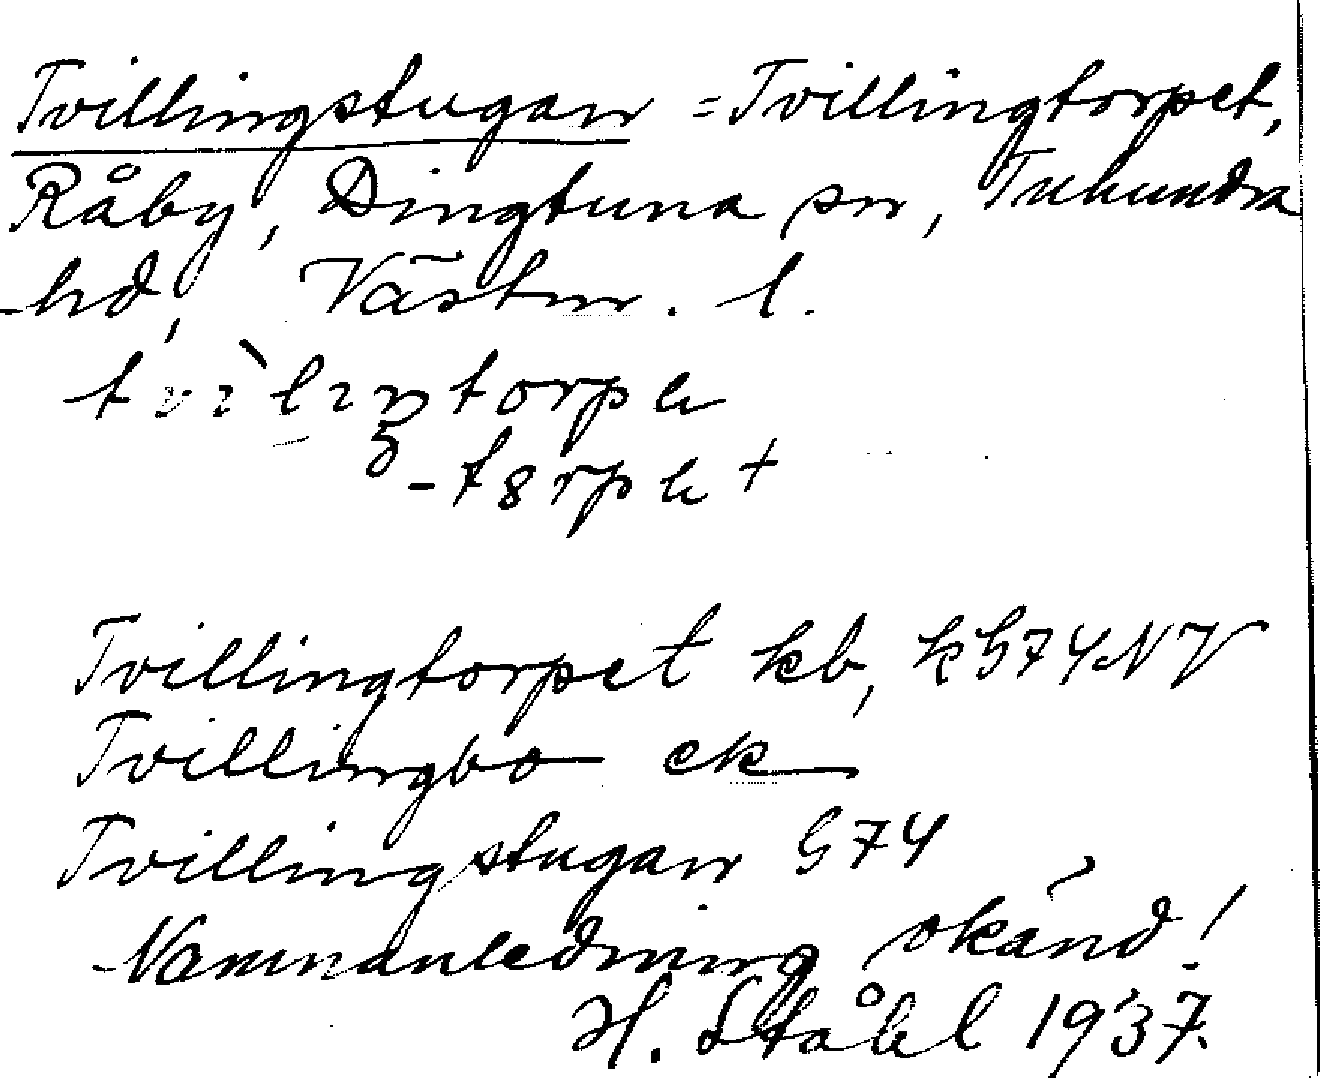 Tvillingstugan = Tvillingtorpet,
Råby, Dingtuna sn, Tuhundra
hd, Västm. l.
-torpet
Tvillingtorpet kb, kG74NV
Tvillingbo ek
Tvillingstugan G74
Namnanledning okänd!
H. Ståhl 1937.